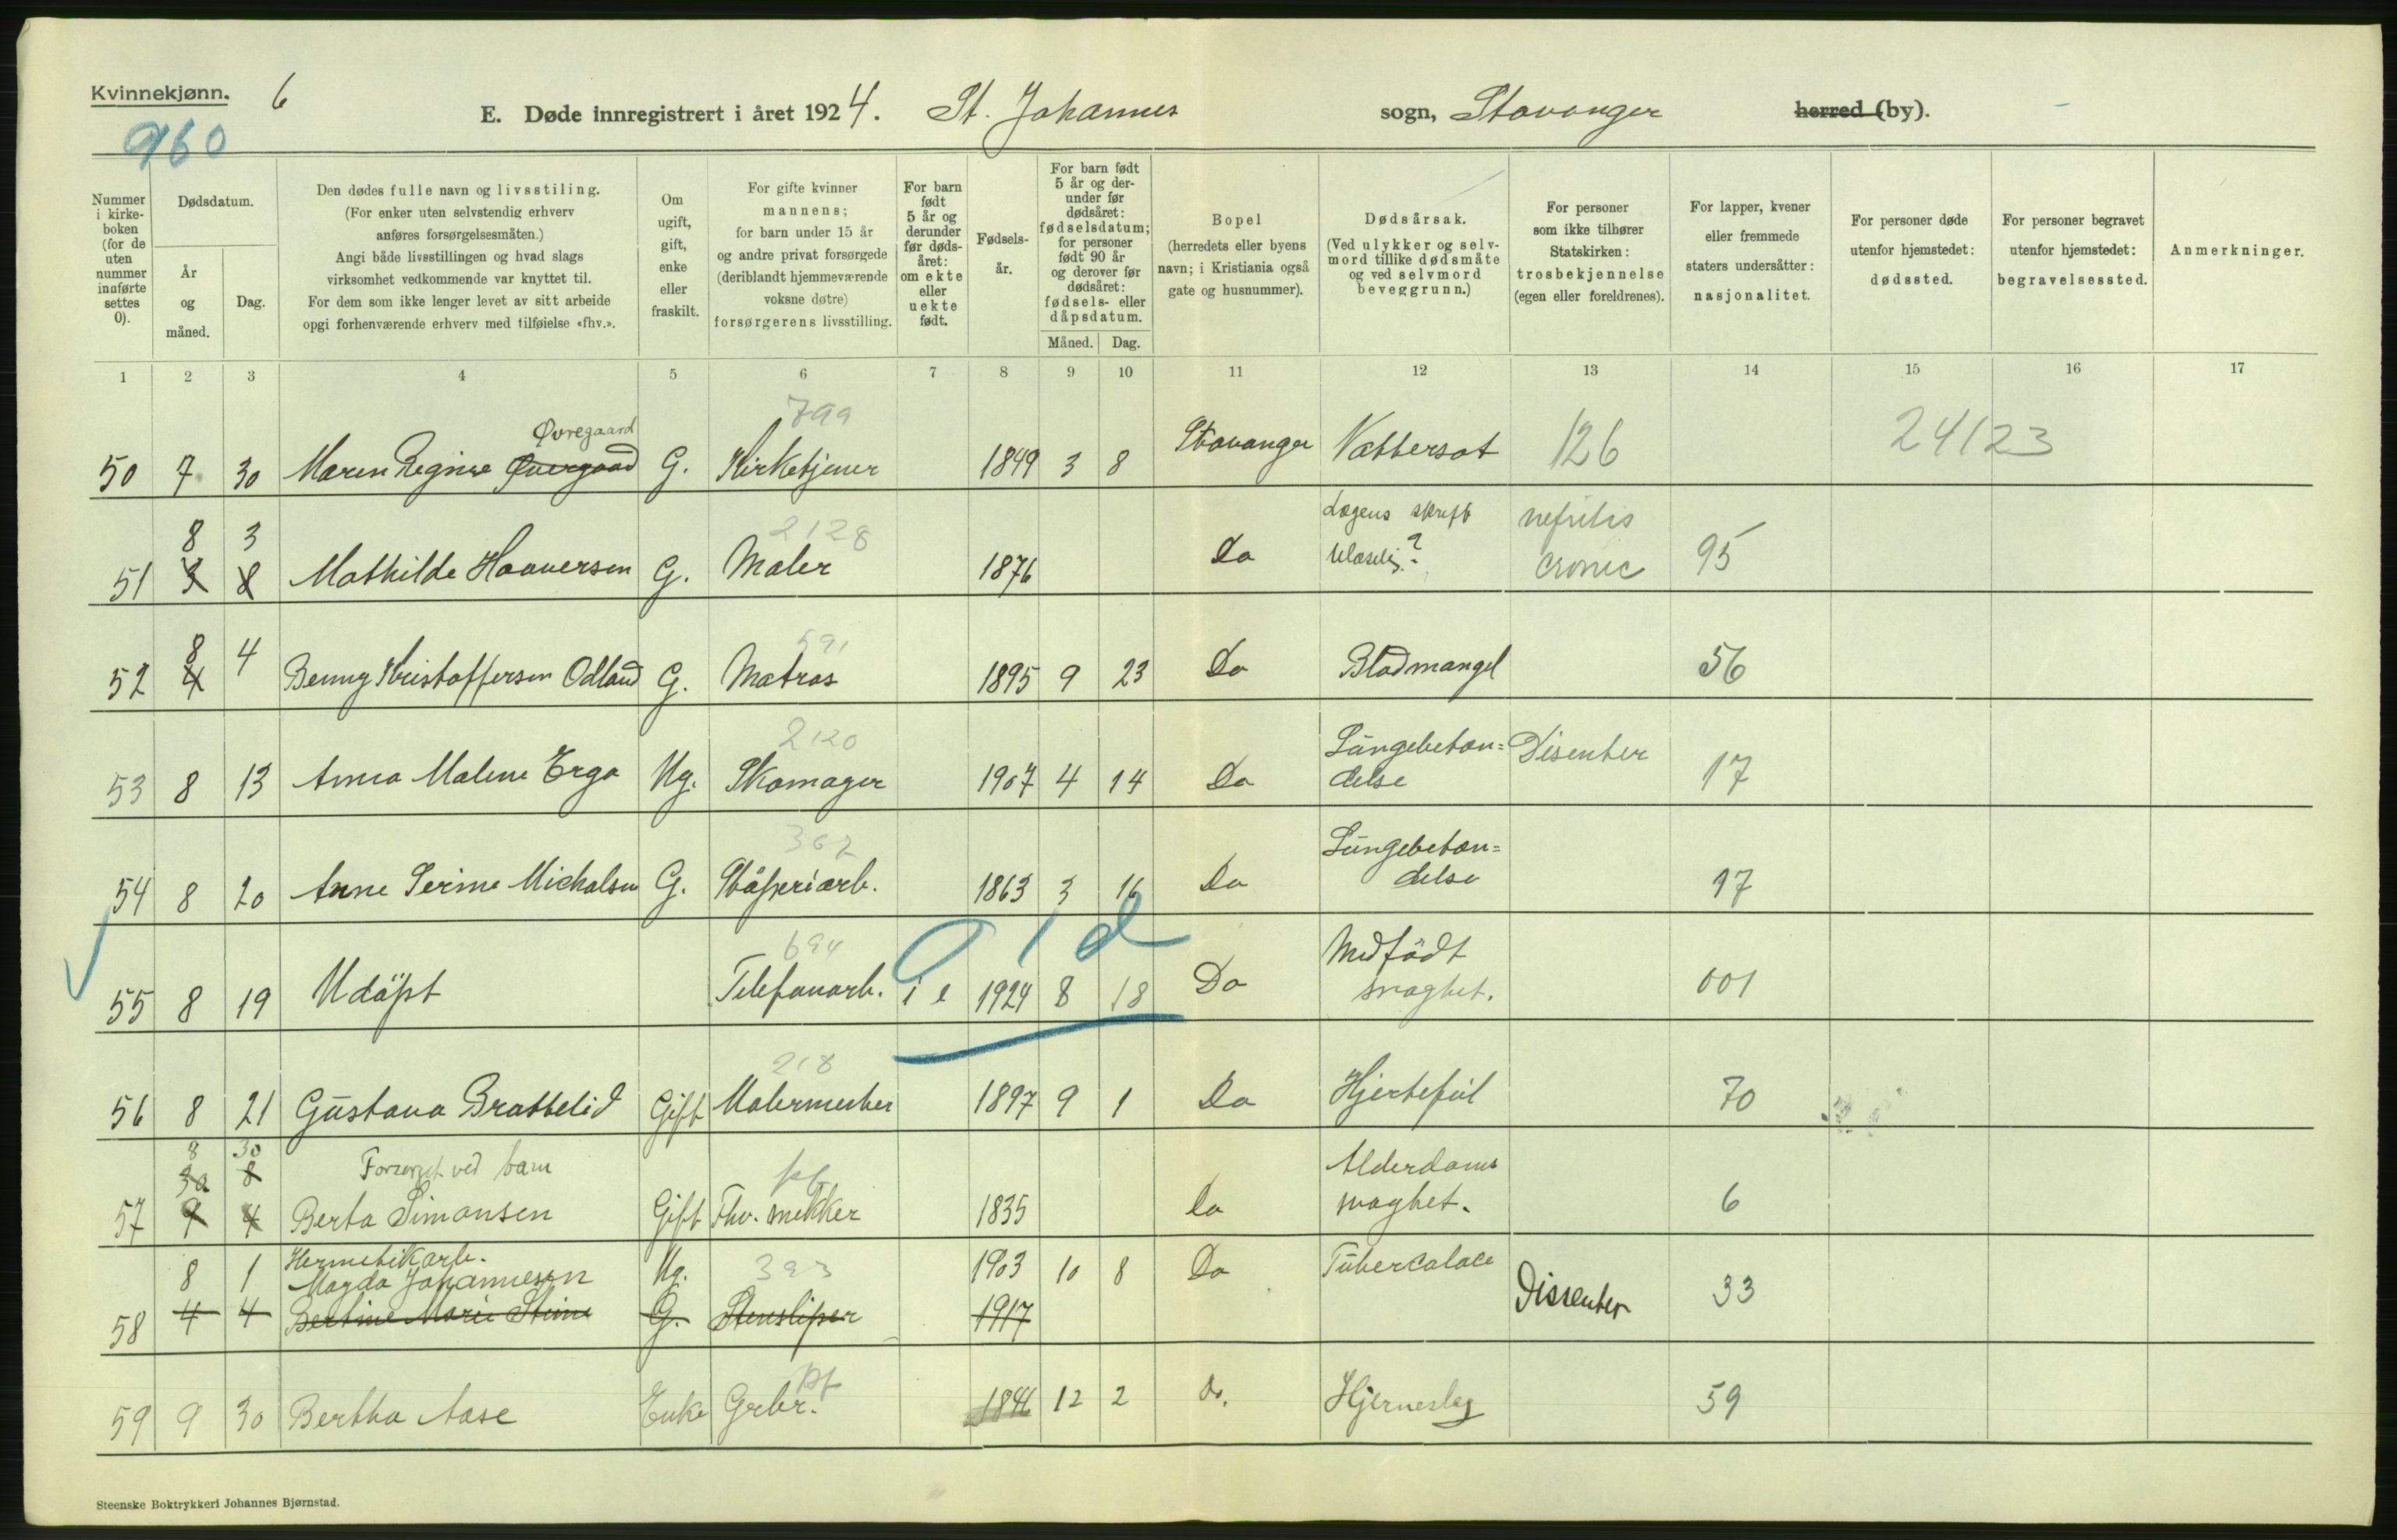 Kvinnekjønn. 6
E. Døde innregistrert i året 1924. St. Johannes sogn, Stavanger herred (by).
960
Nummer i kirke- boken (for de uten nummer innførte settes 0).
Dødsdatum.
År og måned.
Dag.
Den dødes fulle navn og livsstiling.
(For enker uten selvstendig erhverv
anføres forsørgelsesmåten.)
Angi både livsstillingen og hvad slags
virksomhet vedkommende var knyttet til.
For dem som ikke lenger levet av sitt arbeide
opgi forhenværende erhverv med tilføielse «fhv.».
Om ugift, gift, enke eller fraskilt.
For gifte kvinner
mannens;
for barn under 15 år
og andre privat forsørgede
(deriblandt hjemmeværende
voksne døtre)
forsørgerens livsstilling.
For barn født 5 år og derunder før døds- året: om ekte eller uekte født.
Fødsels- år.
For barn født
5 år og der-
under før
dødsåret:
fødselsdatum;
for personer
født 90 år
og derover før
dødsåret:
fødsels- eller
dåpsdatum.
Måned. Dag.
Bopel
(herredets eller byens
navn; i Kristiania også
gate og husnummer).
Dødsårsak.
(Ved ulykker og selv-
mord tillike dødsmåte
og ved selvmord
beveggrunn.)
For personer
som ikke tilhører
Statskirken:
trosbekjennelse
(egen eller foreldrenes).
For lapper, kvener
eller fremmede
staters undersåtter:
nasjonalitet.
For personer døde
utenfor hjemstedet:
dødssted.
For personer begravet
utenfor hjemstedet:
begravelsessted.
Anmerkninger.
1 2 3 4 5 6 7 8 9 10 11 12 13 14 15 16 17
Øvregaard 799
50 7 30 Maren Regine Øvergaad G. Kirketjener 1849 3 8 Stavanger Vattersot 126 24123
8 3 2128 Lægens skrift nefritis
51 3 8 Mathilde Haaversen G. Maler 1876 Do ulæselig? cronic 95
8 4 591
52 4 Benny Kristoffersen Odland G. Matros 1895 9 23 Do Blodmangel 56
2120 Lungebetæn= Disenter
53 8 13 Anna Malene Erga Ug. Skomager 1907 4 14 Do delse 17
362 Lungebetæn=
54 8 20 Anne Serine Michalsen G. Støperiarb. 1863 3 16 Do delse 17
694 0 1 d Medfödt
55 8 19 Udöpt Telefonarb. i e 1924 8 18 Do svaghet. 001
218
56 8 21 Gustava Brattelid Gift Malermester 1897 9 1 Do Hjertefeil 70
8 30 Forsørget ved barn pf Alderdoms
30 8
57 9 4 Berta Simonsen Gift Fhv. snekker 1835 Do svaghet. 6
Hermetikarb.
8 1 Magda Johannesen Ug. 393 1903 10 8 Do Tuberculose Dissenter 33
58 4 4 Bertine Marie Steine G. Stensliper 1917
pf
59 9 30 Bertha Aase Enke Grbr. 1846 12 2 do. Hjerneslag 59
Steenske Boktrykkeri Johannes Bjørnstad.